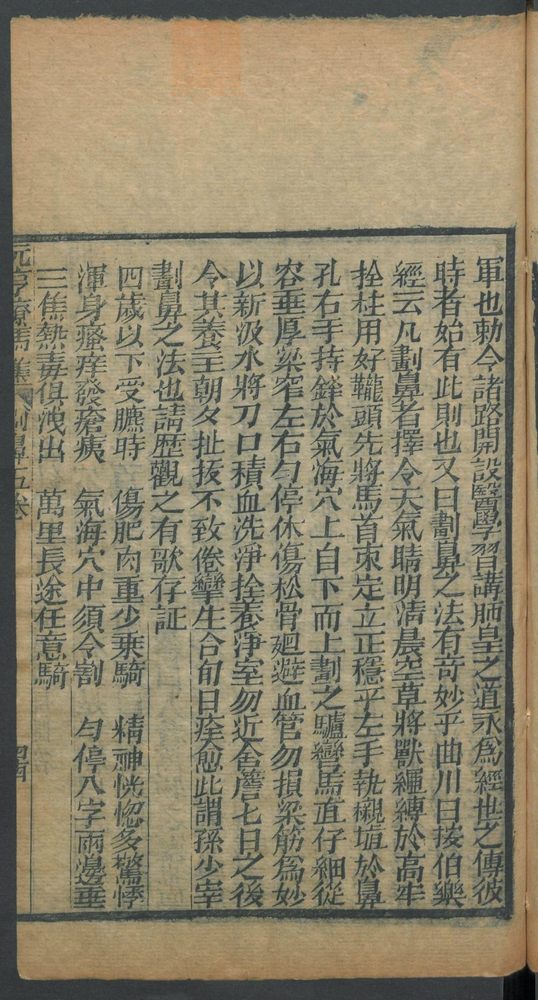 軍也勅令諸路開設醫學習講肺皇之道永爲經世之傳彼
時者始有此則也又曰劃鼻之法有竒妙乎曲川曰按伯樂
經云凡劃鼻者擇令天氣晴明清晨空草將獸繩縛於高牢
拴柱用好韁頭先將馬首束定立正穩乎左手執襯塡於鼻
孔右手持鋒於氣海穴上自下而上劃之驢彎馬直仔細從
容垂厚梁窄左右勻停休傷松骨廻避血管勿損梁筋爲妙
以新汲水將刀口積血洗淨拴養淨室勿近舍簷七日之後
令其養主朝夕扯抜不致倦攣生合旬日痊愈此謂孫少宰
劃鼻之法也請歴觀之有歌存証
四歲以下受臕時　傷肥肉重少乘騎　精神恍惚多驚悸
渾身瘙痒發瘡痍　氣海穴中須令割　勻停八字兩邊垂
三焦熱毒俱洩出　萬里長途任意騎
元亨療馬集　劃鼻五卷